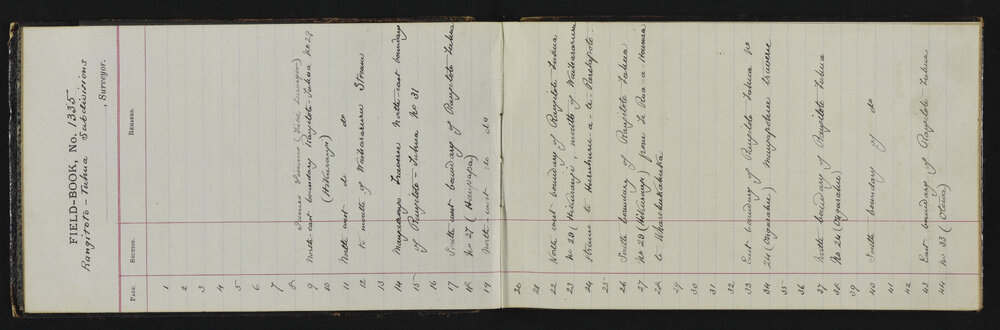 FIELD-BOOK, No. 1335
Rangitoto-Tuhua Subdivisions
, Surveyor.
PAGE. SECTION. REMARKS.
1
2
3
4
5
6
7
8 Surveyor)
9 North-east boundary Rangitoto-Tuhua No 29
10 (Hikurangi)
11 North west do do
12 to mouth of Stream
13
14 Traverse North-east boundary
15 of Rangitoto-Tuhua No 31
16
17 South east boundary of Rangitoto Tuhua
18 No 27 (Haupapa)
19 North-east do do
20
21
22 North east boundary of Rangitoto Tuhua
23 No 29 (Hikurangi), mouth of
24 Stream to
25
26 South boundary of Rangitoto Tuhua
27 No 29 (Hikurangi) from
28 to
29
30
31
32
33 East boundary of Rangitoto Tuhua No
34 traverse
35
36
37 North boundary of Rangitoto Tuhua
38
39
40 South boundary of do
41
42
43 East boundary of Rangitoto Tuhua
44 No 33